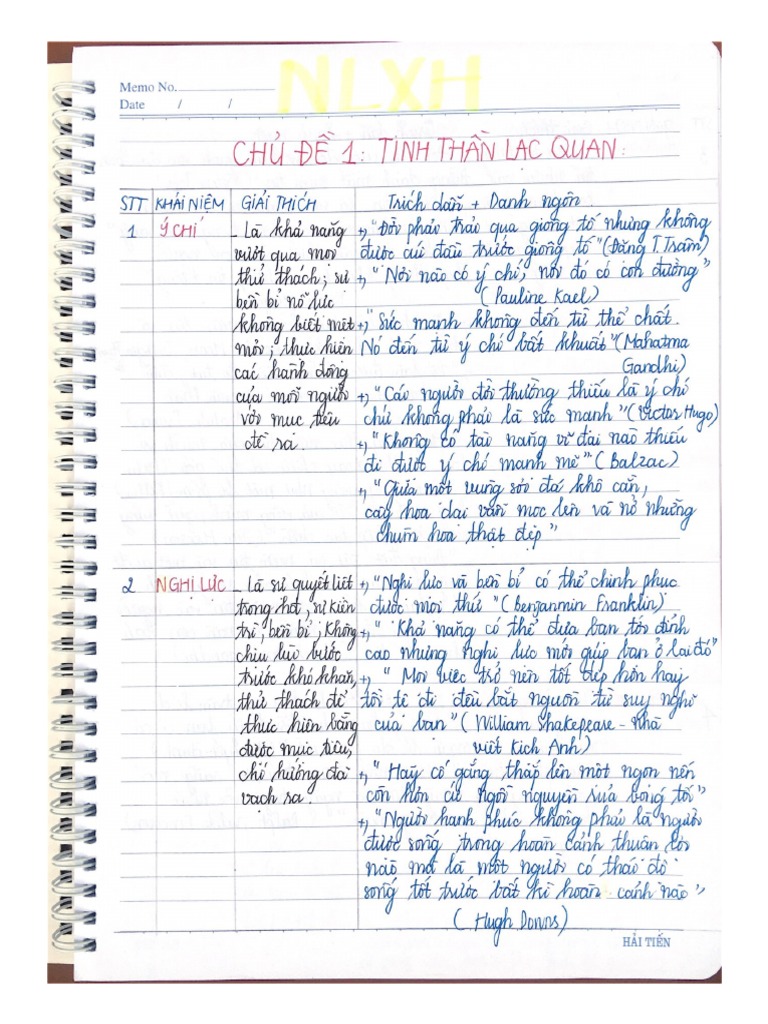 Memo No.
Date / /
NLXH
CHỦ ĐỀ 1: TINH THẦN LẠC QUAN:
STT KHÁI NIỆM GIẢI THÍCH Trích dẫn + Danh ngôn
1 Ý CHÍ
- Là khả năng
vượt qua mọi
thử thách; sự
bền bỉ nỗ lực
không biết mệt
mỏi; thực hiện
các hành động
của mỗi người
với mục tiêu
đề ra.
+, "Đời phải trải qua giông tố nhưng không
được cúi đầu trước giông tố" (Đặng T. Trâm)
+, "Nơi nào có ý chí, nơi đó có con đường"
(Pauline Kael)
+, "Sức mạnh không đến từ thể chất.
Nó đến từ ý chí bất khuất" (Mahatma
Gandhi)
+, "Các người đời thường thiếu là ý chí
chứ không phải là sức mạnh" (Victor Hugo)
+, "Không có tài năng vĩ đại nào thiếu
đi được ý chí mạnh mẽ" (Balzac)
+, "Giữa một vùng sỏi đá khô cằn,
cây hoa dại vẫn mọc lên và nở những
chùm hoa thật đẹp"
2 NGHỊ LỰC
- Là sự quyết liệt
trong họt, sự kiên
trì, bền bỉ; không
chịu lùi bước
trước khó khăn,
thử thách để
thực hiện bằng
được mục tiêu,
chí hướng đã
vạch ra.
+, "Nghị lực và bền bỉ có thể chinh phục
được mọi thứ" (Benjanmin Franklin)
+, "Khả năng có thể đưa bạn tới đỉnh
cao nhưng nghị lực mới giúp bạn ở lại đó"
+, "Mọi việc trở nên tốt đẹp hơn hay
tồi tệ đi đều bắt nguồn từ suy nghĩ
của bạn" (William Shakepeare - Nhà
viết kịch Anh)
+, "Hãy cố gắng thắp lên một ngọn nến
còn hơn cứ ngồi nguyền rủa bóng tối"
+, "Người hạnh phúc không phải là người
được sống trong hoàn cảnh thuận lợi
nào mà là một người có thái độ
sống tốt trước bất kì hoàn cảnh nào"
(Hugh Downs)
HẢI TIẾN